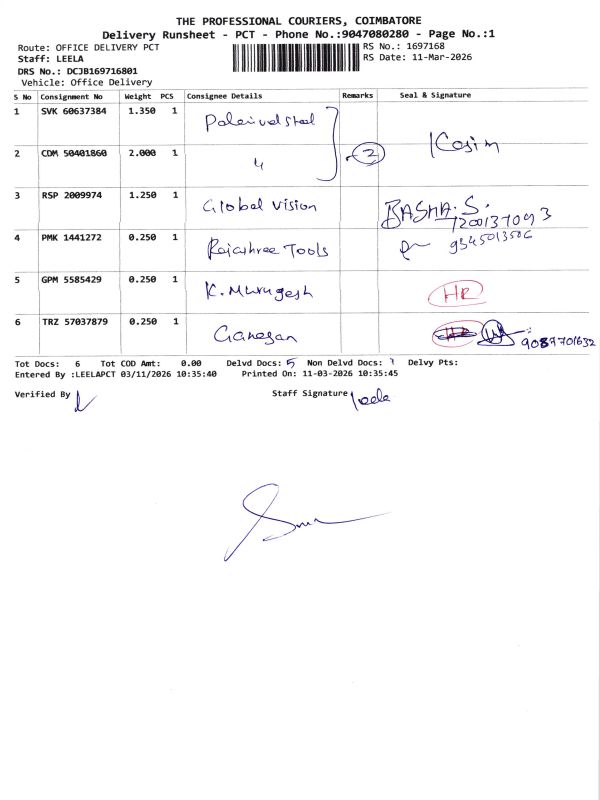 THE PROFESSIONAL COURIERS, COIMBATORE
Delivery Runsheet - PCT - Phone No.:9047080280 - Page No.:1
Route: OFFICE DELIVERY PCT
RS No.: 1697168
Staff: LEELA
RS Date: 11-Mar-2026
DRS No.: DCJB169716801
Vehicle: Office Delivery
S No Consignment No Weight PCS Consignee Details Remarks Seal & Signature
1 SVK 60637384 1.350 1 Palanivel steel
2 CDM 50401860 2.000 1 〃 2 Kasim
3 RSP 2009974 1.250 1 Global Vision BASHA. S. 7200137093
4 PMK 1441272 0.250 1 Rajashree Tools 9345013506
5 GPM 5585429 0.250 1 K. Murugesh HR
6 TRZ 57037879 0.250 1 Ganesan
Tot Docs: 6 Tot COD Amt: 0.00 Delvd Docs: 5 Non Delvd Docs: 1 Delvy Pts:
Entered By :LEELAPCT 03/11/2026 10:35:40 Printed On: 11-03-2026 10:35:45
Verified By Staff Signature leela